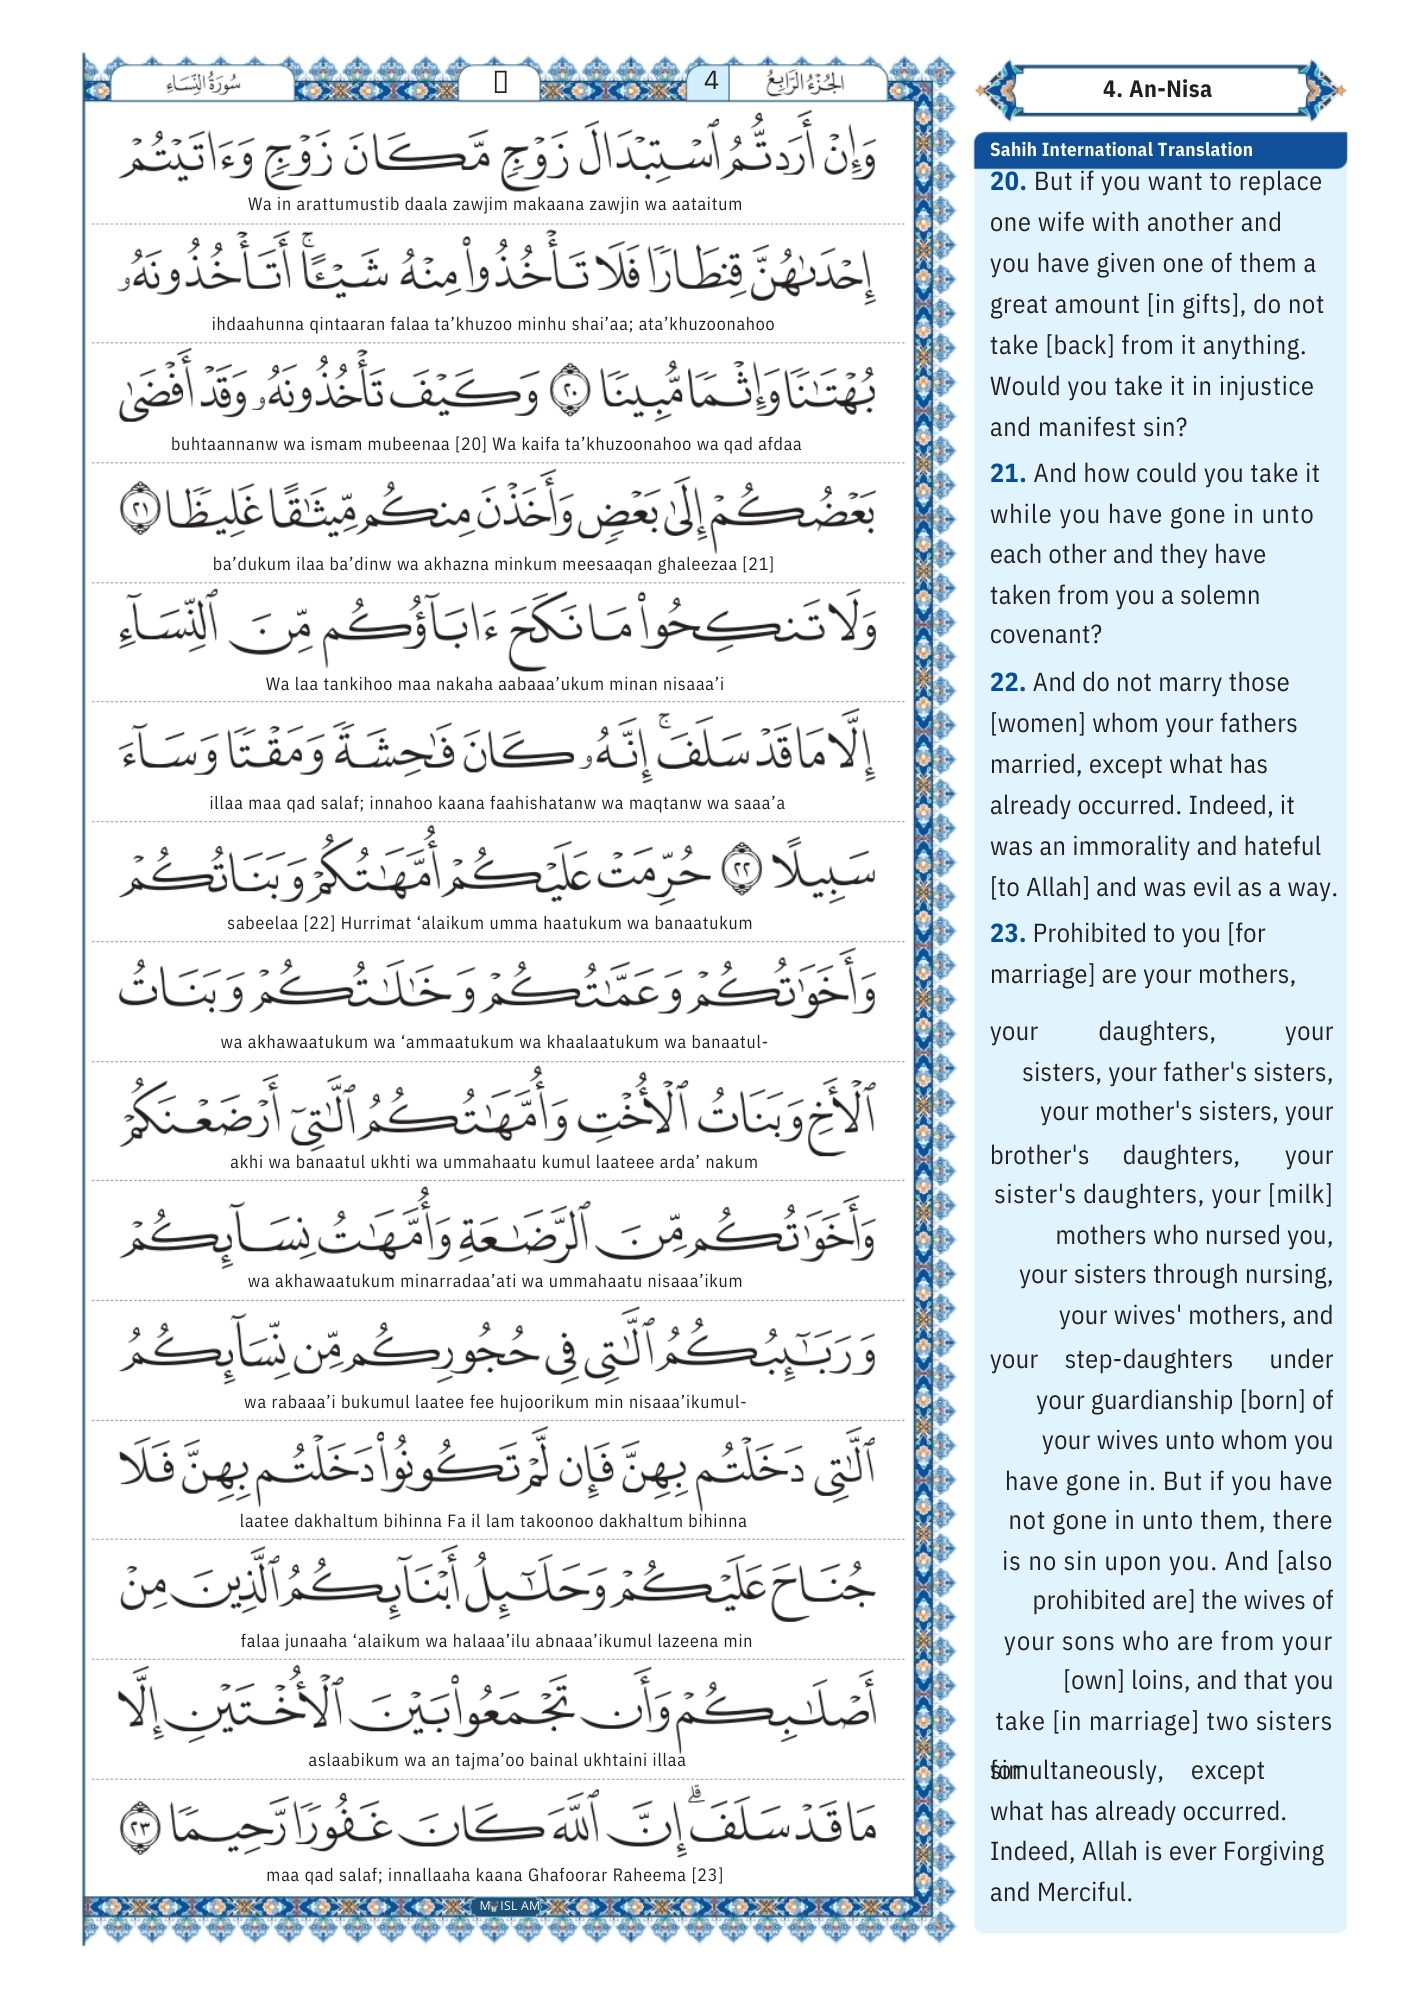 سُورَةُ النِّسَاءِ
4
الجُزْءُ الرَّابِعُ
4. An-Nisa
وَإِنْ أَرَدتُّمُ ٱسْتِبْدَالَ زَوْجٍ مَّكَانَ زَوْجٍ وَءَاتَيْتُمْ
Wa in arattumustib daala zawjim makaana zawjin wa aataitum
إِحْدَىٰهُنَّ قِنطَارًا فَلَا تَأْخُذُوا۟ مِنْهُ شَيْـًٔا ۚ أَتَأْخُذُونَهُۥ
ihdaahunna qintaaran falaa ta’khuzoo minhu shai’aa; ata’khuzoonahoo
بُهْتَـٰنًا وَإِثْمًا مُّبِينًا ٢٠ وَكَيْفَ تَأْخُذُونَهُۥ وَقَدْ أَفْضَىٰ
buhtaannanw wa ismam mubeenaa [20] Wa kaifa ta’khuzoonahoo wa qad afdaa
بَعْضُكُمْ إِلَىٰ بَعْضٍ وَأَخَذْنَ مِنكُم مِّيثَـٰقًا غَلِيظًا ٢١
ba’dukum ilaa ba’dinw wa akhazna minkum meesaaqan ghaleezaa [21]
وَلَا تَنكِحُوا۟ مَا نَكَحَ ءَابَآؤُكُم مِّنَ ٱلنِّسَآءِ
Wa laa tankihoo maa nakaha aabaaa’ukum minan nisaaa’i
إِلَّا مَا قَدْ سَلَفَ ۚ إِنَّهُۥ كَانَ فَـٰحِشَةً وَمَقْتًا وَسَآءَ
illaa maa qad salaf; innahoo kaana faahishatanw wa maqtanw wa saaa’a
سَبِيلًا ٢٢ حُرِّمَتْ عَلَيْكُمْ أُمَّهَـٰتُكُمْ وَبَنَاتُكُمْ
sabeelaa [22] Hurrimat ‘alaikum umma haatukum wa banaatukum
وَأَخَوَٰتُكُمْ وَعَمَّـٰتُكُمْ وَخَـٰلَـٰتُكُمْ وَبَنَاتُ
wa akhawaatukum wa ‘ammaatukum wa khaalaatukum wa banaatul-
ٱلْأَخِ وَبَنَاتُ ٱلْأُخْتِ وَأُمَّهَـٰتُكُمُ ٱلَّـٰتِىٓ أَرْضَعْنَكُمْ
akhi wa banaatul ukhti wa ummahaatu kumul laateee arda’ nakum
وَأَخَوَٰتُكُم مِّنَ ٱلرَّضَـٰعَةِ وَأُمَّهَـٰتُ نِسَآئِكُمْ
wa akhawaatukum minarradaa’ati wa ummahaatu nisaaa’ikum
وَرَبَـٰٓئِبُكُمُ ٱلَّـٰتِى فِى حُجُورِكُم مِّن نِّسَآئِكُمُ
wa rabaaa’i bukumul laatee fee hujoorikum min nisaaa’ikumul-
ٱلَّـٰتِى دَخَلْتُم بِهِنَّ فَإِن لَّمْ تَكُونُوا۟ دَخَلْتُم بِهِنَّ فَلَا
laatee dakhaltum bihinna Fa il lam takoonoo dakhaltum bihinna
جُنَاحَ عَلَيْكُمْ وَحَلَـٰٓئِلُ أَبْنَآئِكُمُ ٱلَّذِينَ مِنْ
falaa junaaha ‘alaikum wa halaaa’ilu abnaaa’ikumul lazeena min
أَصْلَـٰبِكُمْ وَأَن تَجْمَعُوا۟ بَيْنَ ٱلْأُخْتَيْنِ إِلَّا
aslaabikum wa an tajma’oo bainal ukhtaini illaa
مَا قَدْ سَلَفَ ۗ إِنَّ ٱللَّهَ كَانَ غَفُورًا رَّحِيمًا ٢٣
maa qad salaf; innallaaha kaana Ghafoorar Raheema [23]
Sahih International Translation
20. But if you want to replace
one wife with another and
you have given one of them a
great amount [in gifts], do not
take [back] from it anything.
Would you take it in injustice
and manifest sin?
21. And how could you take it
while you have gone in unto
each other and they have
taken from you a solemn
covenant?
22. And do not marry those
[women] whom your fathers
married, except what has
already occurred. Indeed, it
was an immorality and hateful
[to Allah] and was evil as a way.
23. Prohibited to you [for
marriage] are your mothers,
your daughters, your
sisters, your father's sisters,
your mother's sisters, your
brother's daughters, your
sister's daughters, your [milk]
mothers who nursed you,
your sisters through nursing,
your wives' mothers, and
your step-daughters under
your guardianship [born] of
your wives unto whom you
have gone in. But if you have
not gone in unto them, there
is no sin upon you. And [also
prohibited are] the wives of
your sons who are from your
[own] loins, and that you
take [in marriage] two sisters
simultaneously, except
for what has already occurred.
Indeed, Allah is ever Forgiving
and Merciful.